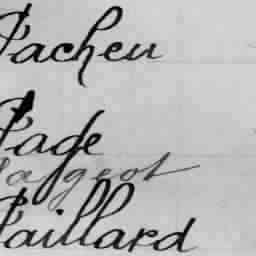 Pacheu
Page
Pageot
Paillard